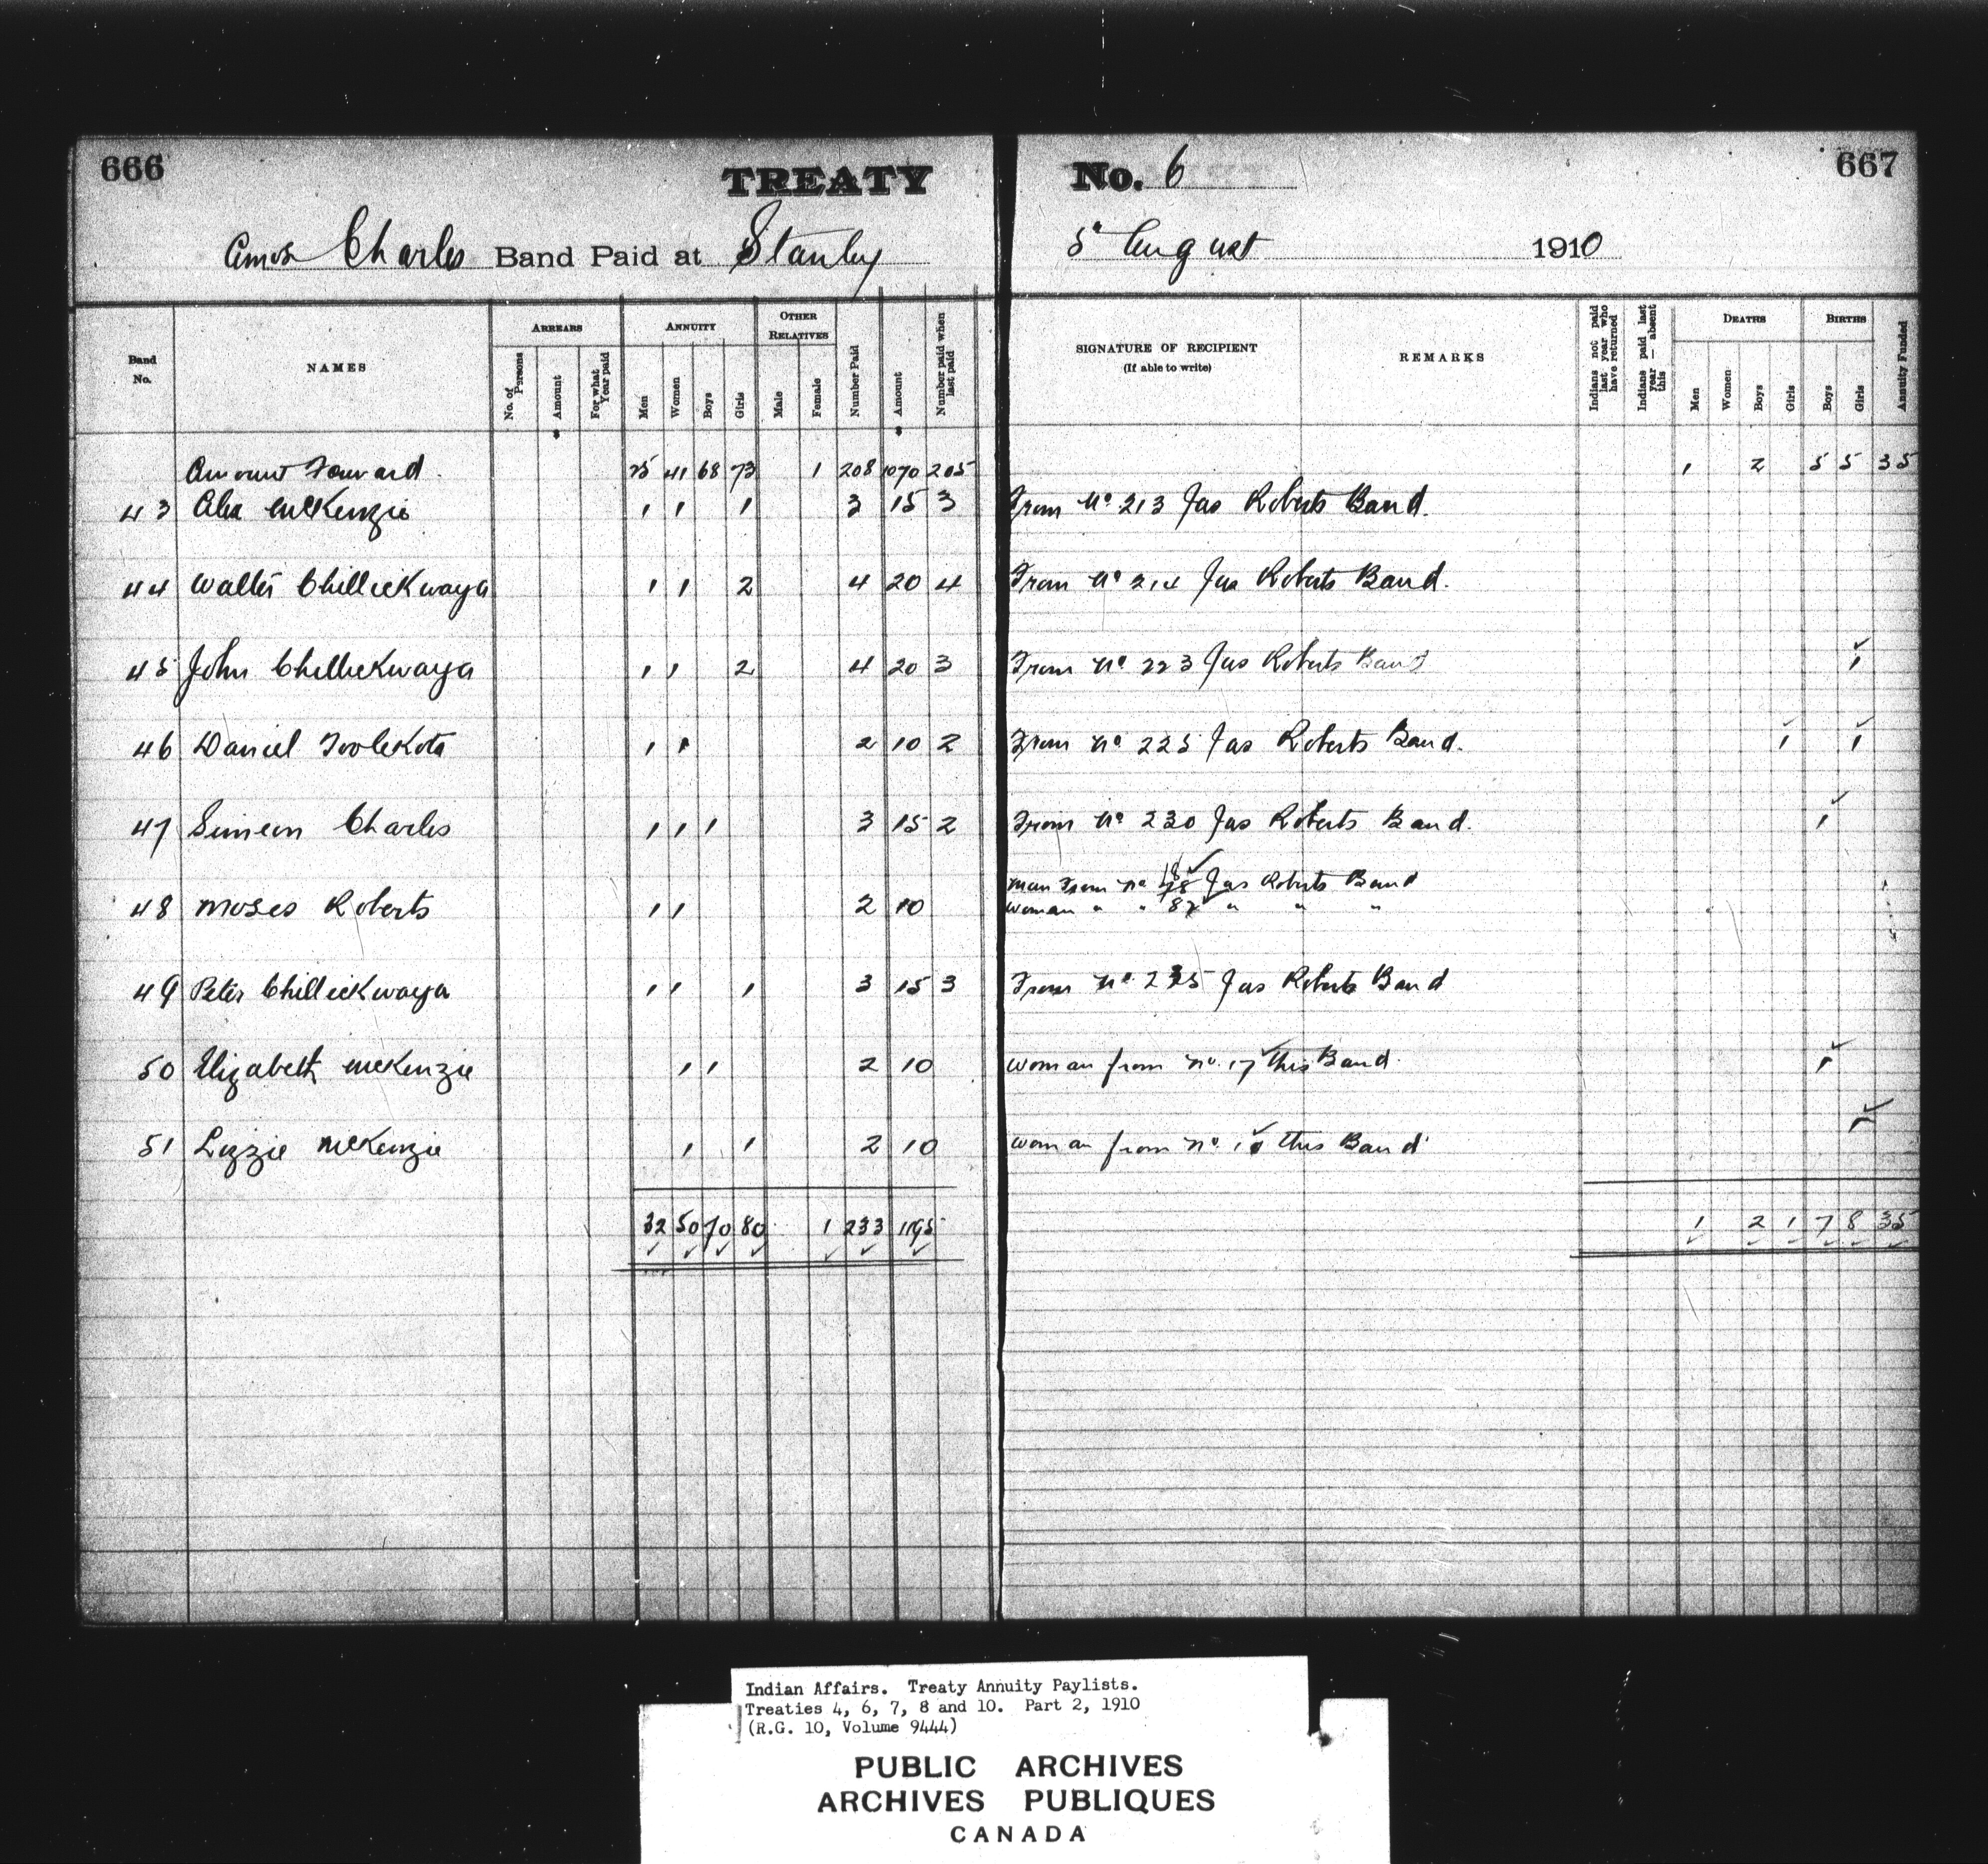 666 TREATY No. 6 667
Amos Charles Band Paid at Stanley 5" August 1910
Band No.
NAMES
ARREARS
No. of Persons
Amount
For what Year paid
ANNUITY
Men
Women
Boys
Girls
OTHER RELATIVES
Male
Female
Number Paid
Amount
Number paid when last paid
SIGNATURE OF RECIPIENT
(If able to write)
REMARKS
Indians not paid last year who have returned
Indians paid last year — absent this
DEATHS
Men
Women
Boys
Girls
BIRTHS
Boys
Girls
Annuity Funded
Amount Forward 25 41 68 73 1 208 1070 205 1 2 5 5 35
43 Alex McKenzie 1 1 1 3 15 3 From No 213 Jas Roberts Band.
44 Walter Chilliekwaya 1 1 2 4 20 4 From No 214 Jas Roberts Band.
45 John Chilliekwaya 1 1 2 4 20 3 From No 223 Jas Roberts Band 1
46 Daniel 1 1 2 10 2 From No 225 Jas Roberts Band. 1 1
47 Simeon Charles 1 1 1 3 15 2 From No 230 Jas Roberts Band. 1
48 Moses Roberts 1 1 2 10 Man From No 18 Jas Roberts Band
Woman " " 87 " " "
49 Peter Chilliekwaya 1 1 1 3 15 3 From No 235 Jas Roberts Band
50 Elizabeth McKenzie 1 1 2 10 Woman from No. 17 this Band. 1
51 Lizzie McKenzie 1 1 2 10 Woman from No. this Band 1
32 50 70 80 1 233 1195 1 2 1 7 8 35
Indian Affairs. Treaty Annuity Paylists.
Treaties 4, 6, 7, 8 and 10. Part 2, 1910
(R.G. 10, Volume 9444)
PUBLIC ARCHIVES
ARCHIVES PUBLIQUES
CANADA